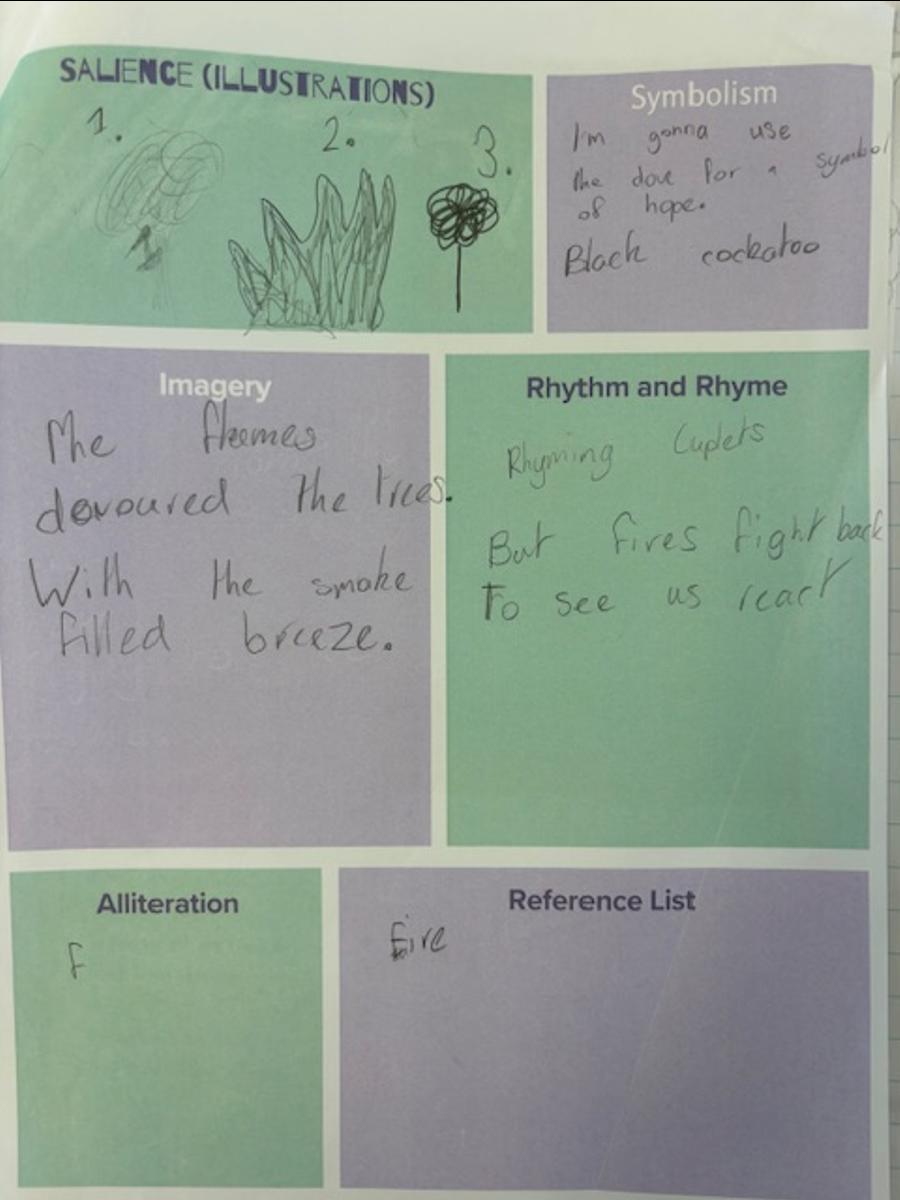 SALIENCE (ILLUSTRATIONS)
1.
2.
3.
Symbolism
I'm gonna use
the dove for a symbol
of hope.
Black cockatoo
Imagery
The flames
devoured the trees.
With the smoke
filled breeze.
Rhythm and Rhyme
Rhyming Cuplets
But fires fight back
To see us react
Alliteration
f
Reference List
Fire